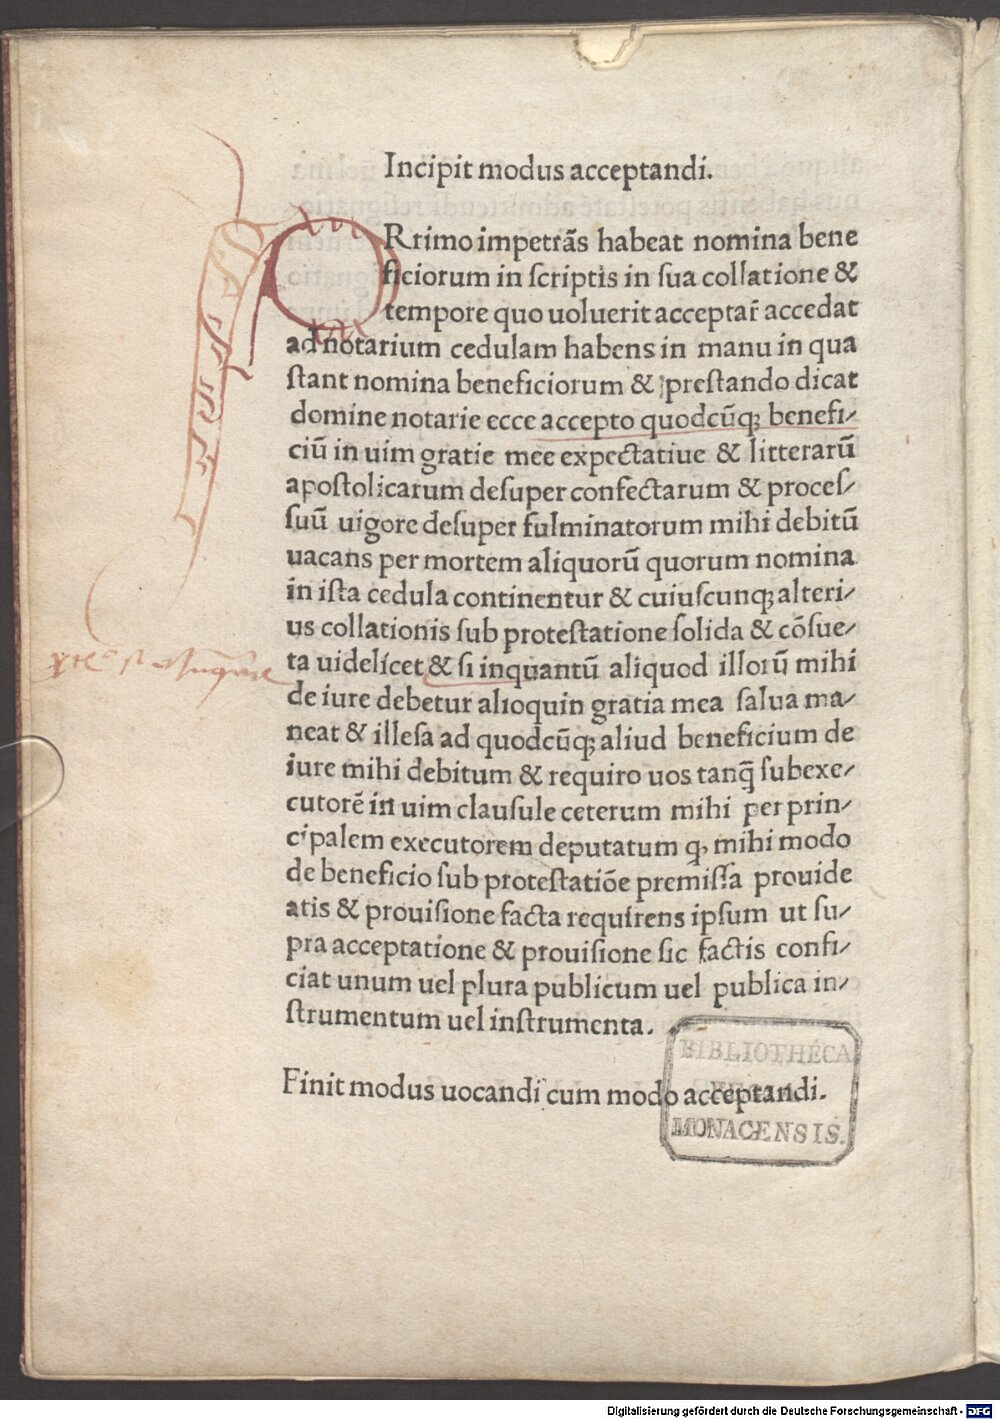 Incipit modus acceptandi.
PRrimo impetrãs habeat nomina bene
ficiorum in scriptis in sua collatione &
tempore quo uoluerit acceptar̃ accedat
ad notarium cedulam habens in manu in qua
stant nomina beneficiorum & prestando dicat
domine notarie ecce accepto quodcũqꝫ benefi/
ciũ in uim gratie mee expectatiue & litterarũ
apostolicarum desuper confectarum & proces/
suũ uigore desuper fulminatorum mihi debitũ
uacans per mortem aliquorũ quorum nomina
in ista cedula continentur & cuiuscunqꝫ alteri/
us collationis sub protestatione solida & cõsue/
ta uidelicet & si inquantũ aliquod illorũ mihi
de iure debetur alioquin gratia mea salua ma/
neat & illesa ad quodcũqꝫ aliud beneficium de
iure mihi debitum & requiro uos tanq̃ subexe/
cutorẽ in uim clausule ceterum mihi per prin/
cipalem executorem deputatum ꝙ mihi modo
de beneficio sub protestatiõe premissa prouide
atis & prouisione facta requirens ipsum ut su/
pra acceptatione & prouisione sic factis confi/
ciat unum uel plura publicum uel publica in/
strumentum uel instrumenta.
Finit modus uocandi cum modo acceptandi.
BIBLIOTHECA
REGIA
MONACENSIS.
Digitalisierung gefördert durch die Deutsche Forschungsgemeinschaft - DFG